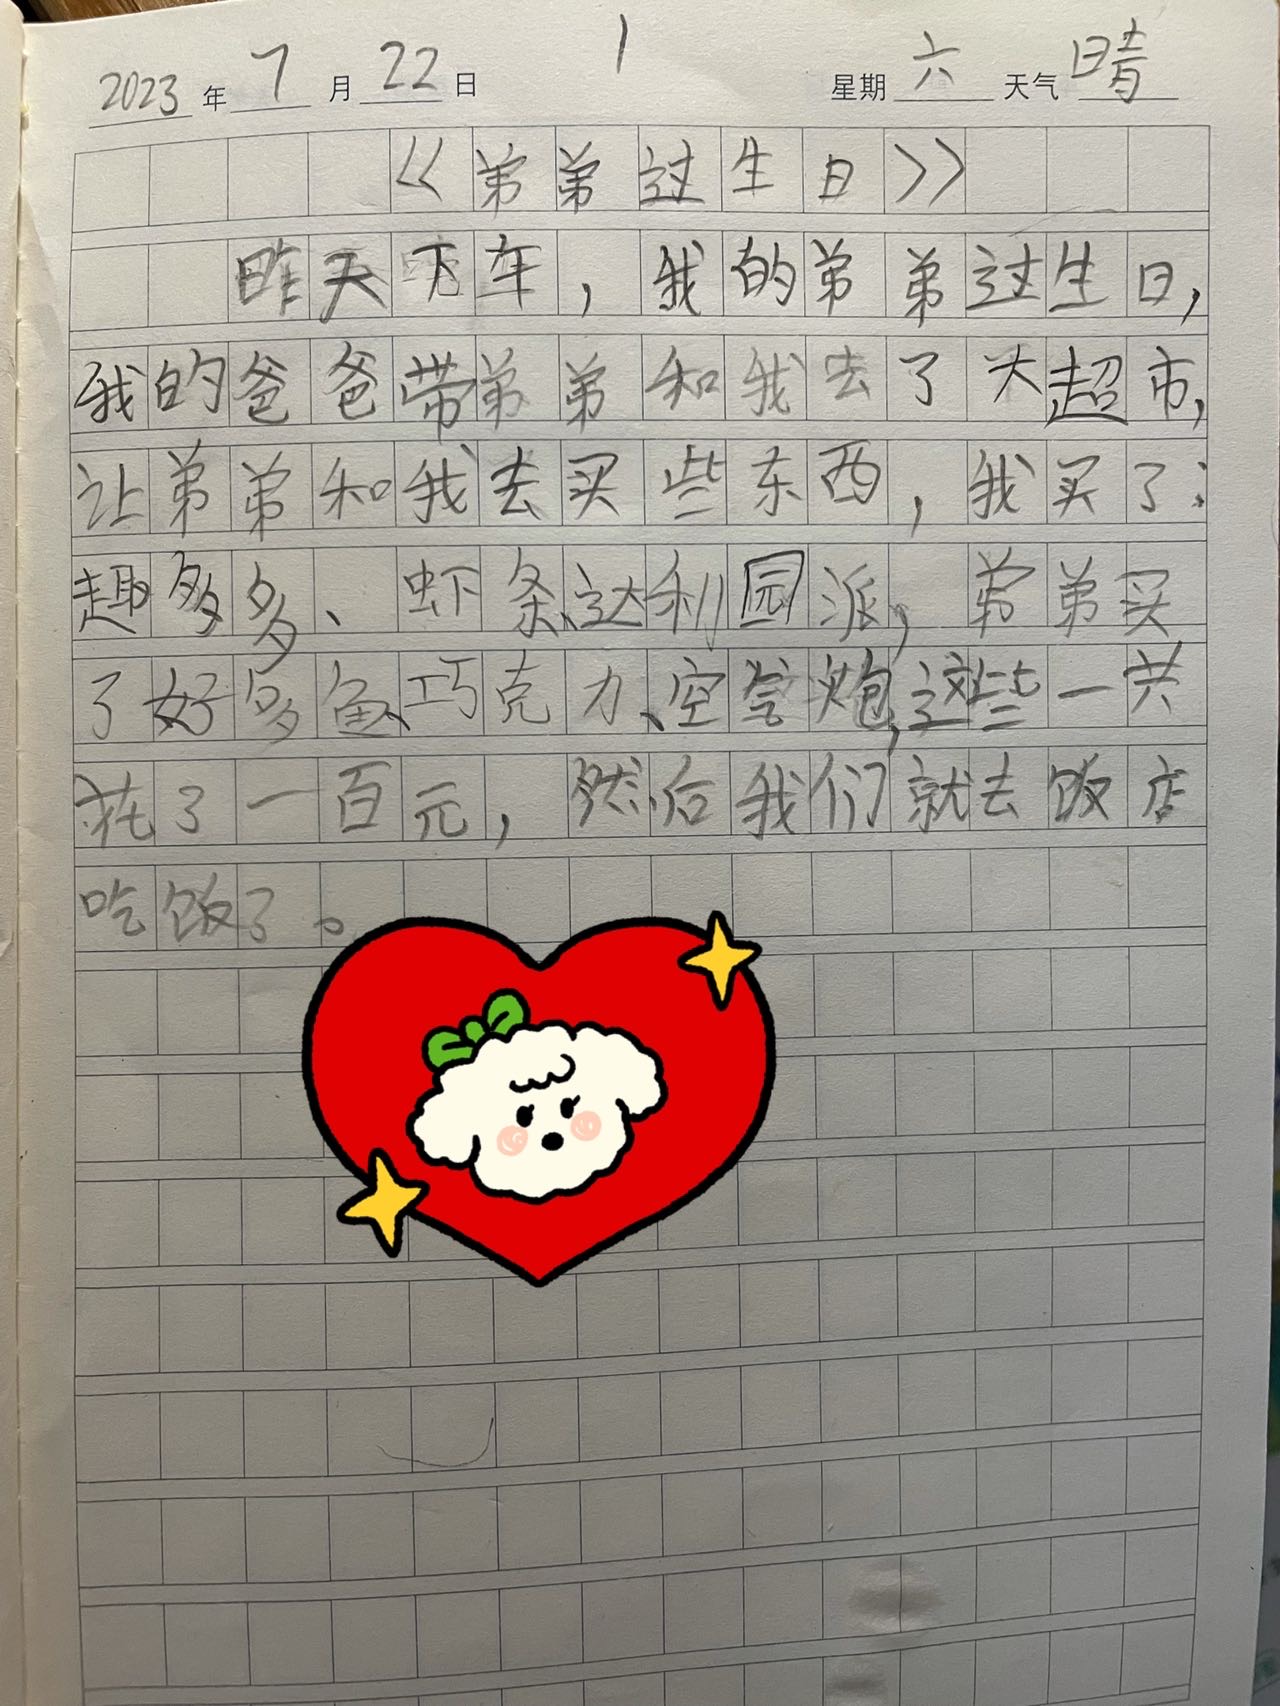 2023年7月22日 1 星期六 天气晴
《弟弟过生日》
昨天下车，我的弟弟过生日，
我的爸爸带弟弟和我去了大超市，
让弟弟和我去买些东西，我买了：
趣多多、虾条、达利园派，弟弟买
了好多鱼、巧克力、空气炮，这些一共
花了一百元，然后我们就去饭店
吃饭了。